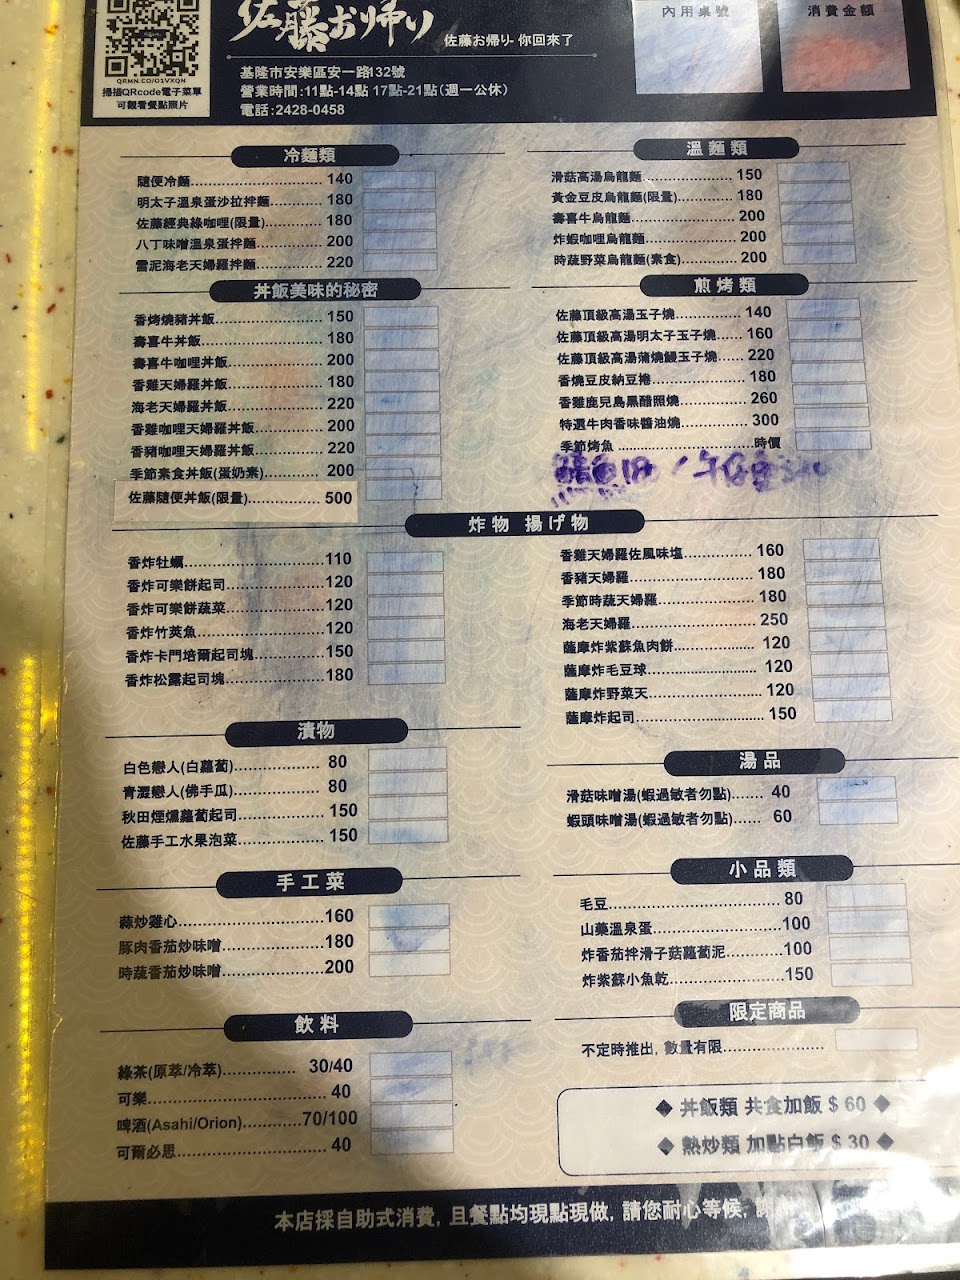 佐藤お帰り
佐藤お帰り- 你回來了
內用桌號
消費金額
QRMN.CO/O1VXQN
掃描QRcode電子菜單
可觀看餐點照片
基隆市安樂區安一路132號
營業時間:11點-14點 17點-21點(週一公休)
電話:2428-0458
冷麵類
隨便冷麵 140
明太子溫泉蛋沙拉拌麵 180
佐藤經典綠咖哩(限量) 180
八丁味噌溫泉蛋拌麵 200
雲泥海老天婦羅拌麵 220
溫麵類
滑菇高湯烏龍麵 150
黃金豆皮烏龍麵(限量) 180
壽喜牛烏龍麵 200
炸蝦咖哩烏龍麵 200
時蔬野菜烏龍麵(素食) 200
丼飯美味的秘密
香烤燒豬丼飯 150
壽喜牛丼飯 180
壽喜牛咖哩丼飯 200
香雞天婦羅丼飯 180
海老天婦羅丼飯 220
香雞咖哩天婦羅丼飯 200
香豬咖哩天婦羅丼飯 220
季節素食丼飯(蛋奶素) 200
佐藤隨便丼飯(限量) 500
煎烤類
佐藤頂級高湯玉子燒 140
佐藤頂級高湯明太子玉子燒 160
佐藤頂級高湯蒲燒鰻玉子燒 220
香燒豆皮納豆捲 180
香雞鹿兒島黑醋照燒 260
特選牛肉香味醬油燒 300
季節烤魚 時價
炸物 揚げ物
香炸牡蠣 110
香炸可樂餅起司 120
香炸可樂餅蔬菜 120
香炸竹莢魚 120
香炸卡門培爾起司塊 150
香炸松露起司塊 180
香雞天婦羅佐風味塩 160
香豬天婦羅 180
季節時蔬天婦羅 180
海老天婦羅 250
薩摩炸紫蘇魚肉餅 120
薩摩炸毛豆球 120
薩摩炸野菜天 120
薩摩炸起司 150
漬物
白色戀人(白蘿蔔) 80
青澀戀人(佛手瓜) 80
秋田煙燻蘿蔔起司 150
佐藤手工水果泡菜 150
湯品
滑菇味噌湯(蝦過敏者勿點) 40
蝦頭味噌湯(蝦過敏者勿點) 60
手工菜
蒜炒雞心 160
豚肉香茄炒味噌 180
時蔬香茄炒味噌 200
小品類
毛豆 80
山藥溫泉蛋 100
炸香茄拌滑子菇蘿蔔泥 100
炸紫蘇小魚乾 150
飲料
綠茶(原萃/冷萃) 30/40
可樂 40
啤酒(Asahi/Orion) 70/100
可爾必思 40
限定商品
不定時推出, 數量有限
◆ 丼飯類 共食加飯 $ 60 ◆
◆ 熱炒類 加點白飯 $ 30 ◆
本店採自助式消費, 且餐點均現點現做, 請您耐心等候,